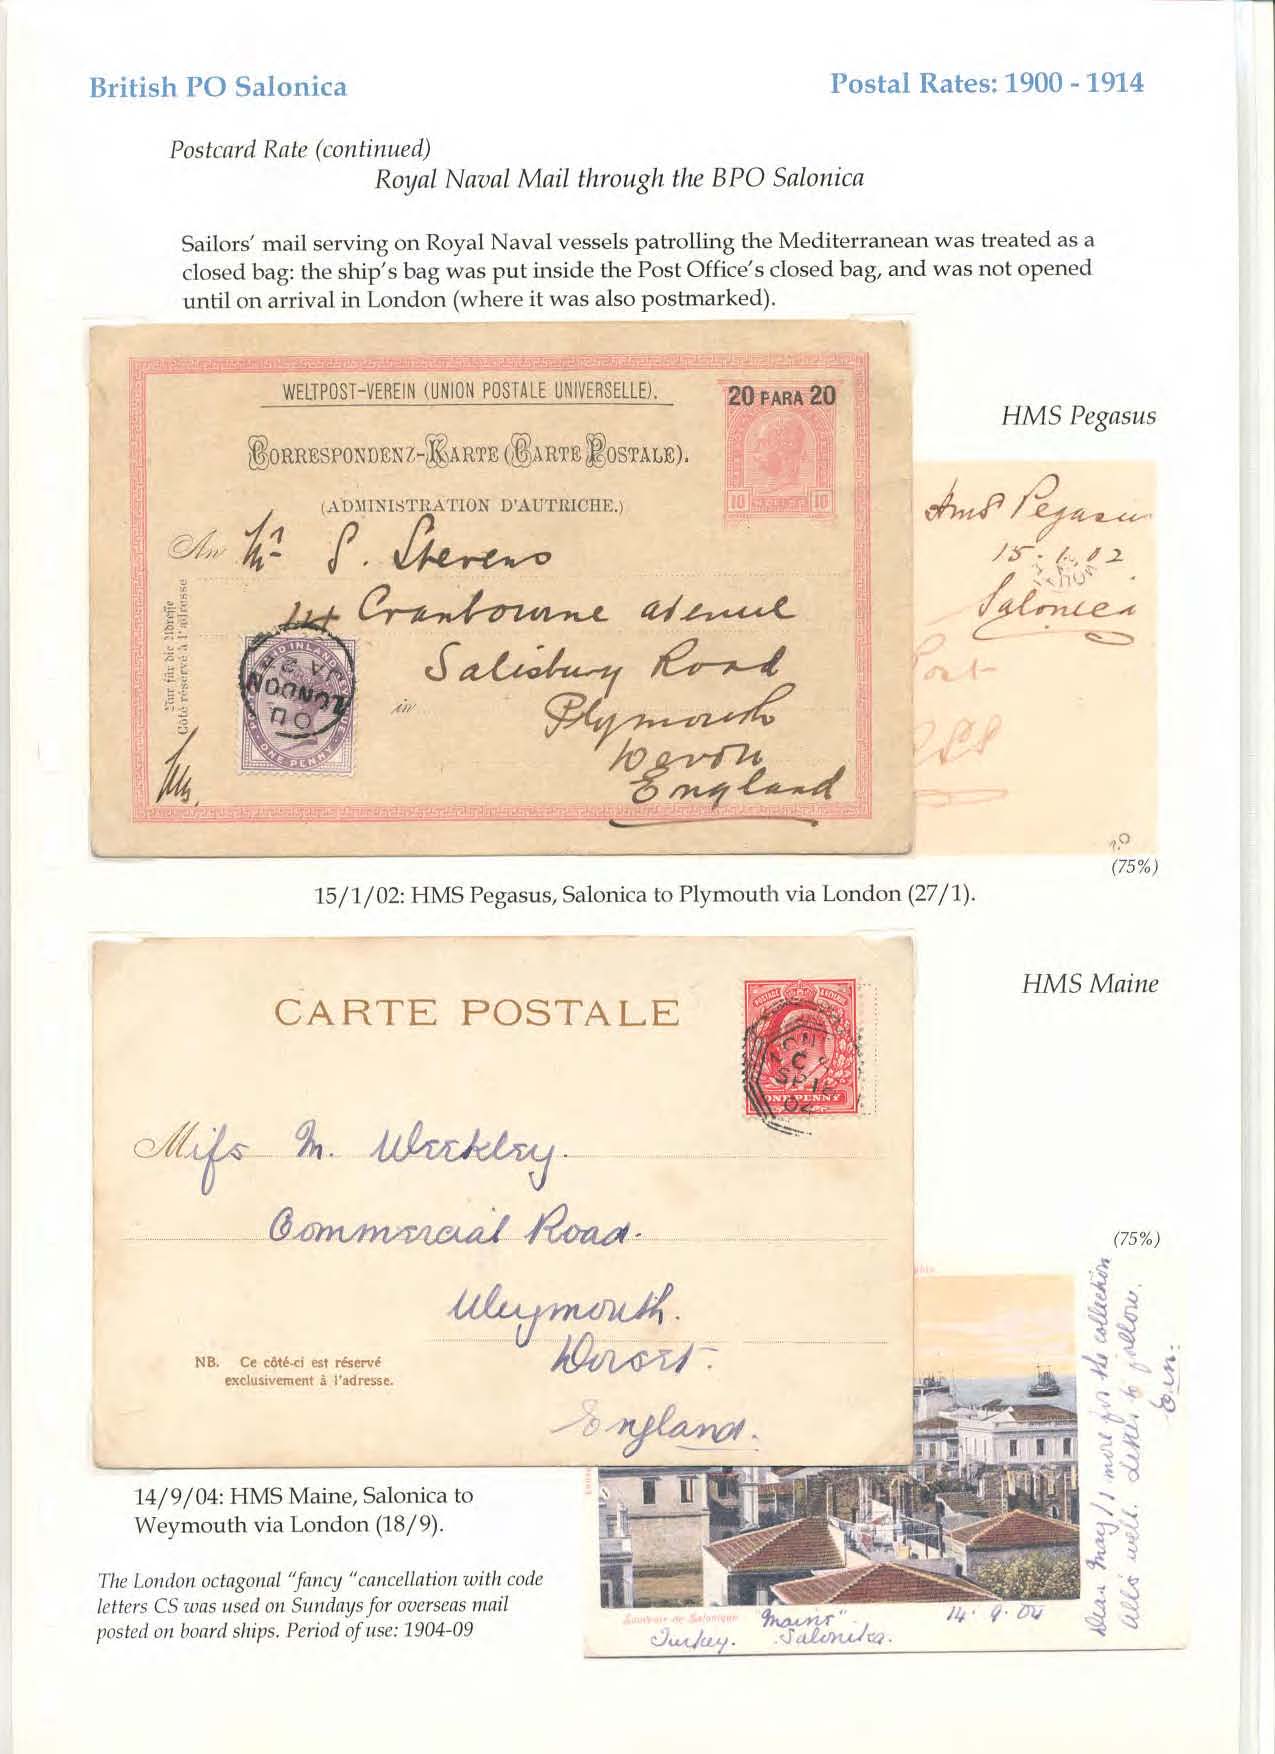 British PO Salonica
Postal Rates: 1900 - 1914
Postcard Rate (continued)
Royal Naval Mail through the BPO Salonica
Sailors' mail serving on Royal Naval vessels patrolling the Mediterranean was treated as a
closed bag: the ship's bag was put inside the Post Office's closed bag, and was not opened
until on arrival in London (where it was also postmarked).
HMS Pegasus
WELTPOST-VEREIN (UNION POSTALE UNIVERSELLE).
20 PARA 20
CORRESPONDENZ-KARTE (CARTE POSTALE).
(ADMINISTRATION D'AUTRICHE.)
10 10
An Mr S. Stevens
14 Cranbourne avenue
Salisbury Road
in Plymouth
Devon
England
Nur für die Adresse
Côté réservé à l'adresse
LONDON
JA 2
02
ONE PENNY
HMS Pegasus
15-1-02
Salonica
(75%)
15/1/02: HMS Pegasus, Salonica to Plymouth via London (27/1).
HMS Maine
CARTE POSTALE
POSTAGE & REVENUE
ONE PENNY
LON
C
SP 18
Miss M. Weekley.
Commercial Road.
Weymouth.
Dorset.
England.
NB. Ce côté-ci est réservé
exclusivement à l'adresse.
(75%)
Dear May/1 more for the collection
all's well. Letter to follow.
14/9/04: HMS Maine, Salonica to
Weymouth via London (18/9).
The London octagonal "fancy "cancellation with code
letters CS was used on Sundays for overseas mail
posted on board ships. Period of use: 1904-09
Souvenir de Salonique
"Maine" 14.9.04
Turkey. Salonica.